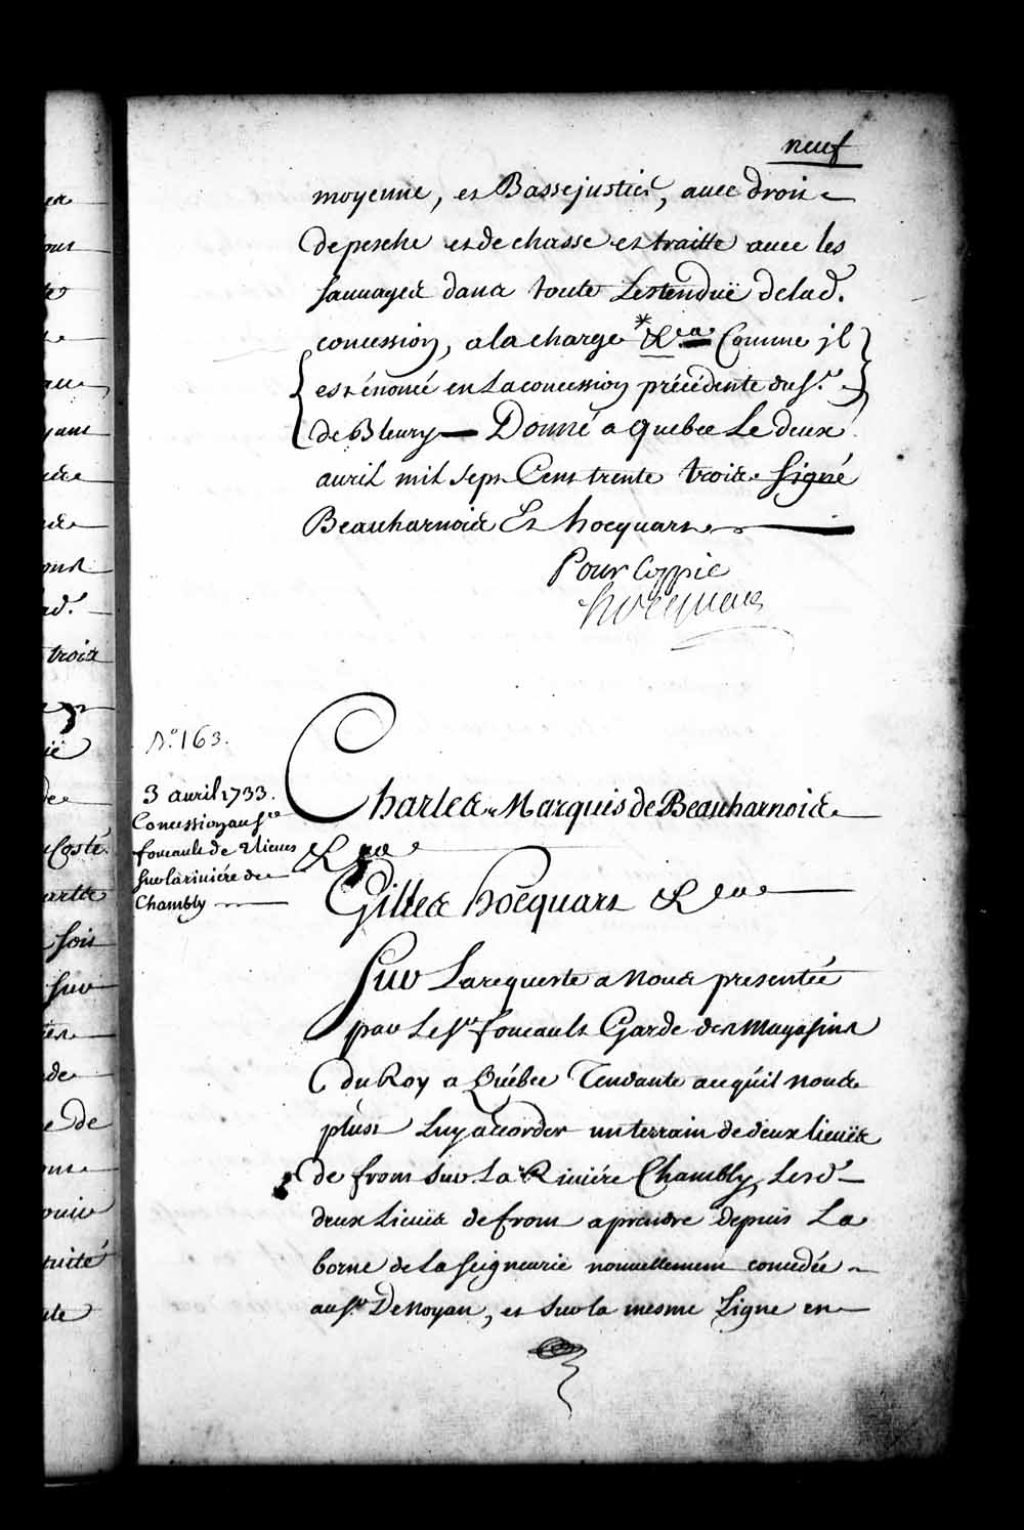 neuf
moyenne, et Basse justice, avec droit
de pesche et de chasse et traitte avec les
sauvages dans toute Lestendüe de lad.
concession, a la charge * &c.a Comme jl
est énoncé en La concession précédente du Sr.
de Bleury — Donné a Quebec Le deux
avril mil sept Cent trente trois Signé
Beauharnois Et hocquart
Pour Coppie
hocquart
N.o 163.
3 avril 1733.
Concession au Sr
foucault de 2 lieues
sur la riviére de
Chambly
Charles Marquis de Beauharnois
&ca
Gilles hocquart &ca
Sur La requeste a Nous presentée
par Le Sr. foucault Garde des Magasins
du Roy a Québec Tendante a ce qu'il nous
plust Luy accorder un terrain de deux lieües
de front sur La Riviére Chambly, Lesd.
deux Lieües de front a prendre depuis La
borne de La seigneurie nouvellement concedée
au Sr. De Noyan, et sur la mesme Ligne en
trois
Costé
soit
sur
de
e de